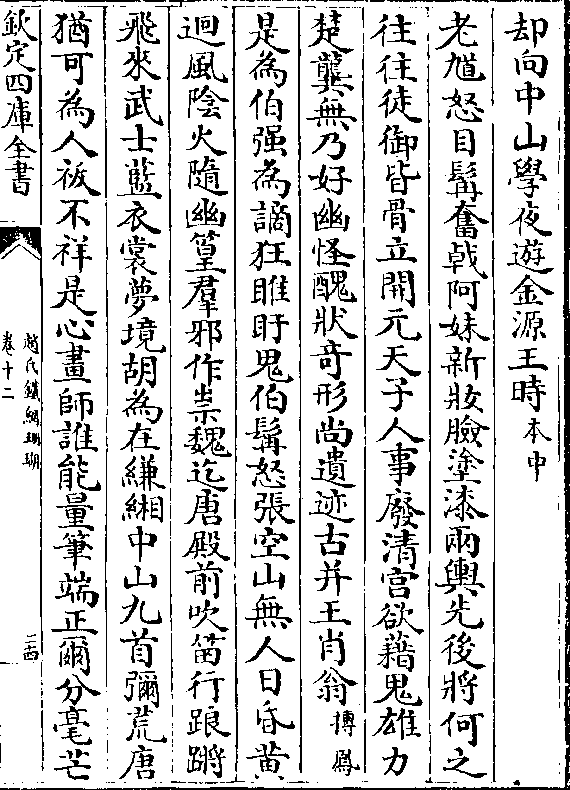 却向中山學夜遊金源王時本中
老馗怒目髯奮戟阿妹新妝臉塗漆兩輿先後將何之
往往徒御皆骨立開元天子人事廢清宮欲藉鬼雄力
楚龔無乃好幽怪醜狀奇形尚遺迹古并王肖翁摶鳳
是為伯强為謫狂睢盱鬼伯髯怒張空山無人日昏黄
迴風陰火隨幽篁羣邪作祟魏迄唐殿前吹笛行踉蹡
飛來武士藍衣裳夢境胡為在縑緗中山九首彌荒唐
猶可為人祓不祥是心畫師誰能量筆端正爾分毫芒
欽定四庫全書
趙氏鐵網珊瑚
卷十二
二四